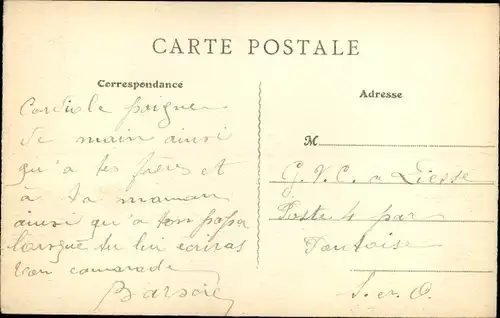 CARTE POSTALE
Correspondance
Adresse
Cordiale poignee
de main ainsi
qu'a tes frères et
à ta maman
ainsi qu'a ton papa
lorsque tu lui ecriras
ton camarade
M
G. V. C. a Liesse
Poste 4 par
Pontoise
S. et O.